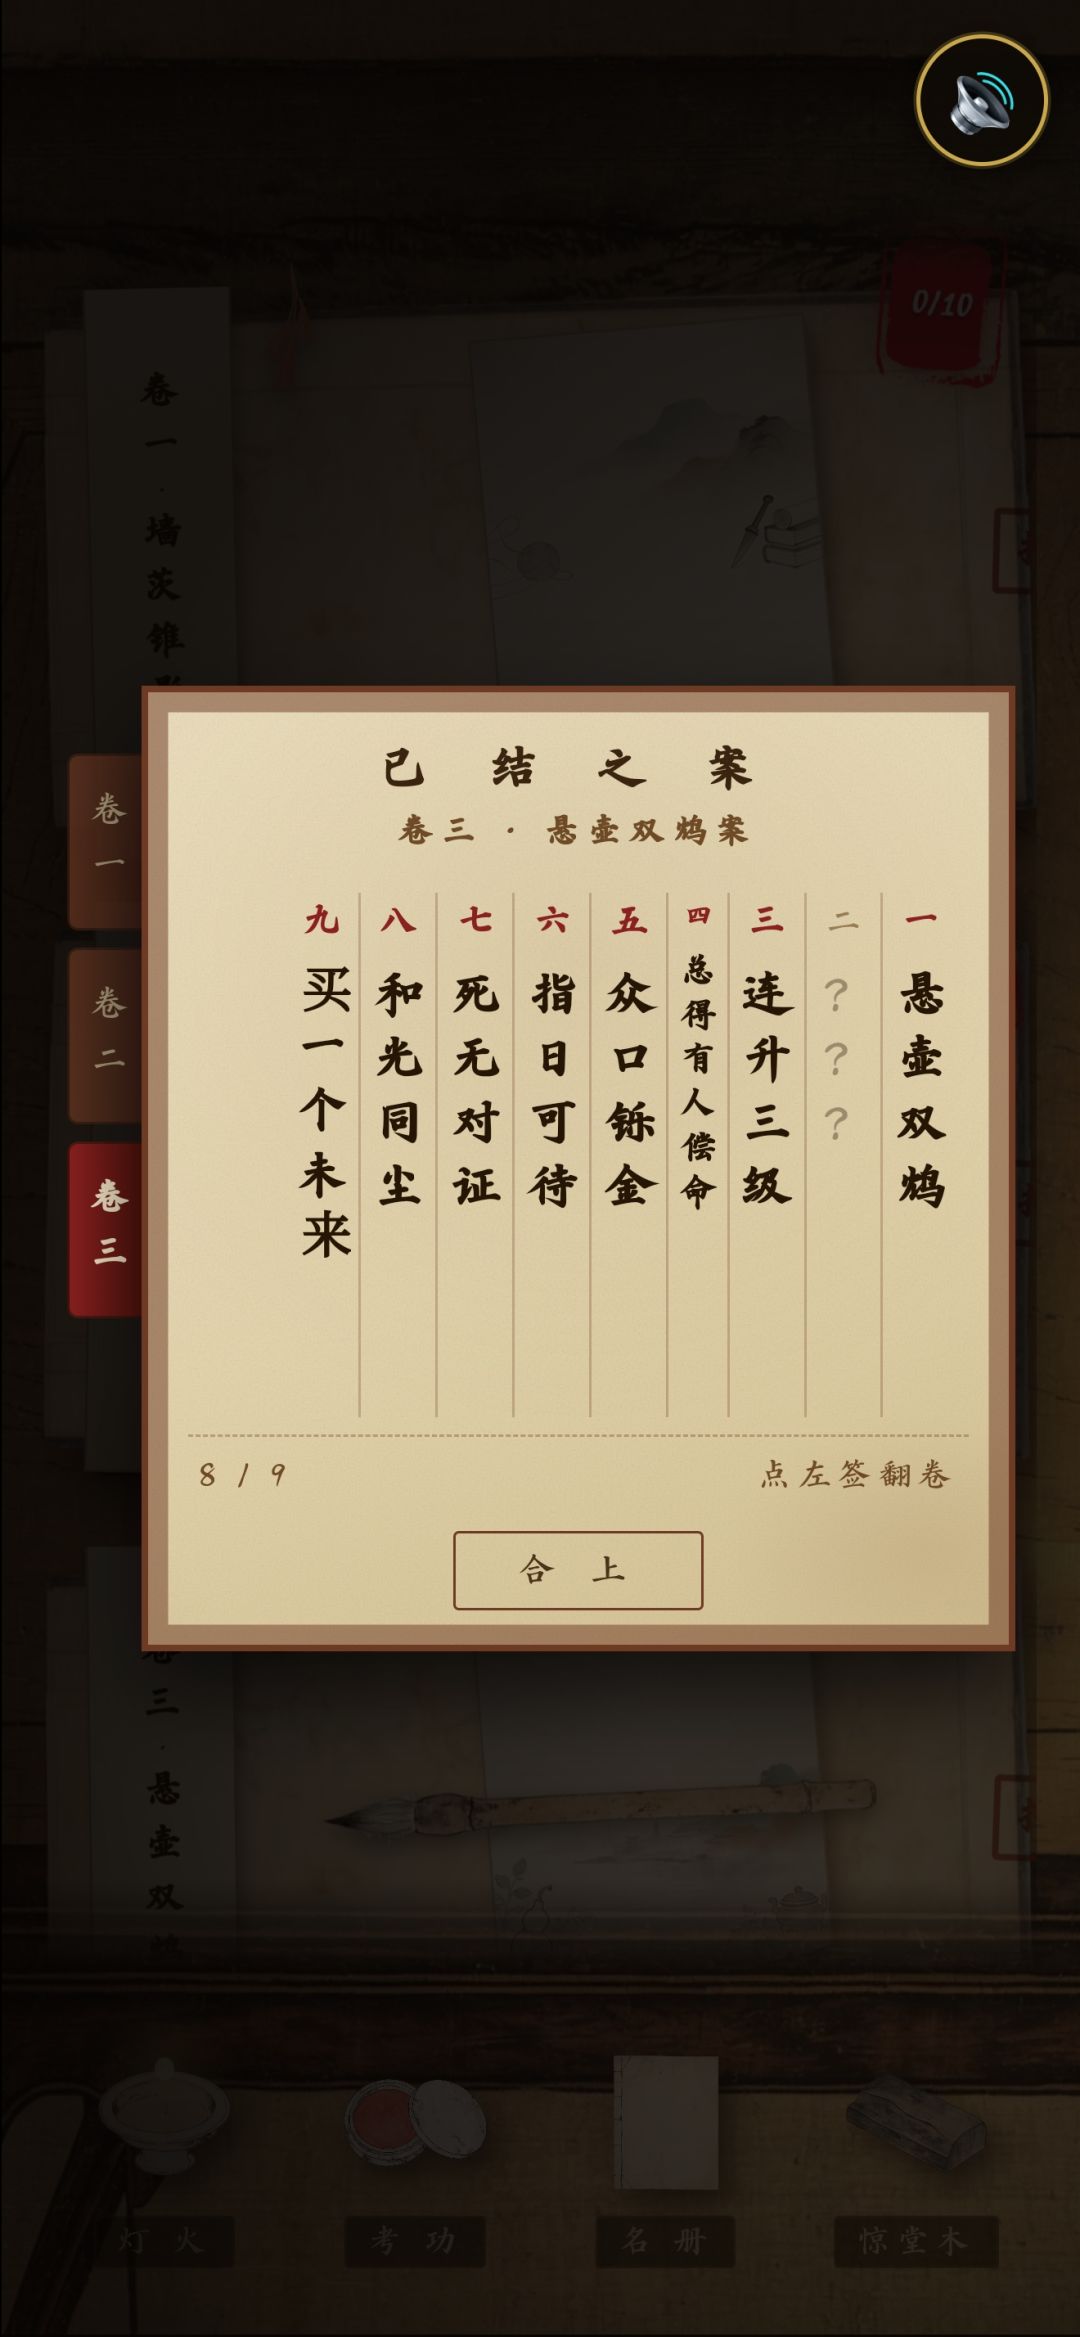 0/10
卷一·墙茨锥
已结之案
卷三·悬壶双鸩案
一 悬壶双鸩
二 ???
三 连升三级
四 总得有人偿命
五 众口铄金
六 指日可待
七 死无对证
八 和光同尘
九 买一个未来
卷一
卷二
卷三
8 / 9
点左签翻卷
合上
卷三·悬壶双鸩
灯火
考功
名册
惊堂木